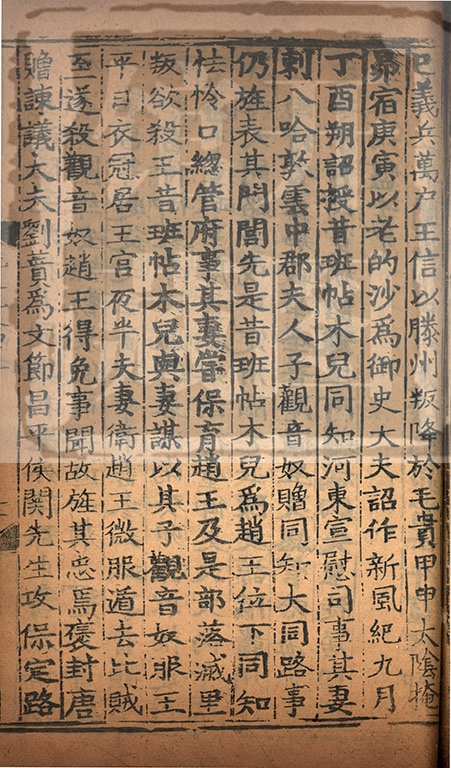 巳義兵萬户王信以滕州叛降於毛貴甲申太陰掩
昴宿庚寅以老的沙爲御史大夫詔作新風紀九月
丁酉朔詔授昔班帖木兒同知河東宣慰司事其妻
剌八哈敦雲中郡夫人子觀音奴贈同知大同路事
仍旌表其門閭先是昔班帖木兒爲趙王位下同知
怯怜口緫管府事其妻甞保育趙王及是部落滅里
叛欲殺王昔班帖木兒與妻謀以其子觀音奴服王
平日衣冠居王宫夜半夫妻衛趙王微服遁去比賊
至遂殺觀音奴趙王得免事聞故旌其忠焉襃封唐
贈諫議大夫劉蕡爲文節昌平侯関先生攻保定路